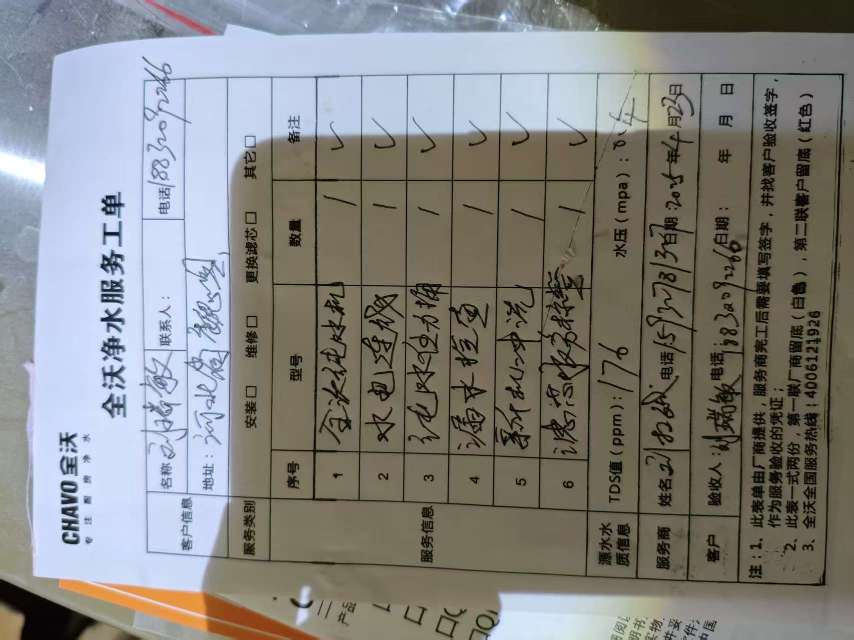 CHAVO 全沃
专注厨房净水
全沃净水服务工单
客户信息 名称 刘瑞敏 联系人： 电话 18832092266
地址：河北省
服务类别 安装□ 维修□ 更换滤芯□ 其它□
服务信息 序号 型号 数量 备注
1 全沃纯水机 1 ✓
2 水电连接 1 ✓
3 纯水 1 ✓
4 漏水检查 1 ✓
5 新机冲洗 1 ✓
6 滤芯 1 ✓
源水水质信息 TDS值（ppm）：176 水压（mpa）：0.4
服务商 姓名 电话 日期 2025年4月23日
客户 验收人：刘瑞敏 电话：18832092266 日期： 年 月 日
注：1、此表单由厂商提供，服务商完工后需要填写签字，并找客户验收签字，
作为服务验收的凭证；
2、此表一式两份，第一联厂商留底（白色），第二联客户留底（红色）
3、全沃全国服务热线：4006121926
产品